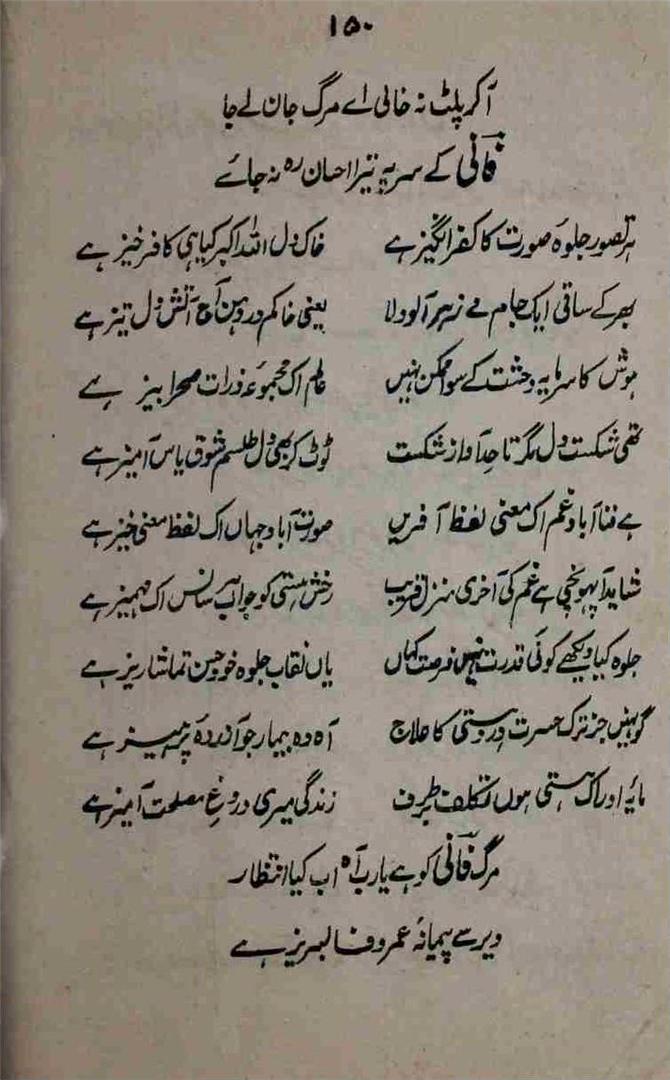 ۱۵۰
آکر پلٹ نہ خالی اے مرگ جان لے جا
فانی کے سر پہ تیرا احسان رہ نہ جائے
ہر تصور جلوۂ صورت کا کفر انگیز ہے خاک دل اللہ اکبر کیا ہی کافر خیز ہے
بھر کے ساقی ایک جام مے زہر آلود لا یعنی خاکم در دہن آج آتش دل تیز ہے
ہوش کا سرمایہ وحشت کے سوا ممکن نہیں عالم اک مجموعۂ ذرات صحرا بیز ہے
تھی شکست دل مگر تا حد آواز شکست ٹوٹ کر بھی دل طلسم شوق یاس آمیز ہے
ہے فنا آباد غم اک معنی لفظ آفریں صورت آباد جہاں اک لفظ معنی خیز ہے
شاید آ پہونچی ہے غم کی آخری منزل قریب رخش ہستی کو جو اب ہر سانس اک مہمیز ہے
جلوہ کیا دیکھے کوئی قدرت نہیں فرصت کہاں یاں نقاب جلوہ خود جین تماشا ریز ہے
گو نہیں جز ترک حسرت درد ہستی کا علاج آہ وہ بیمار جو آزردۂ پرہیز ہے
مایۂ ادراک ہستی ہوں تکلف برطرف زندگی میری دروغ مصلحت آمیز ہے
مرگ فانی کو ہے یارب آہ اب کیا انتظار
دیر سے پیمانۂ عمر وفا لبریز ہے